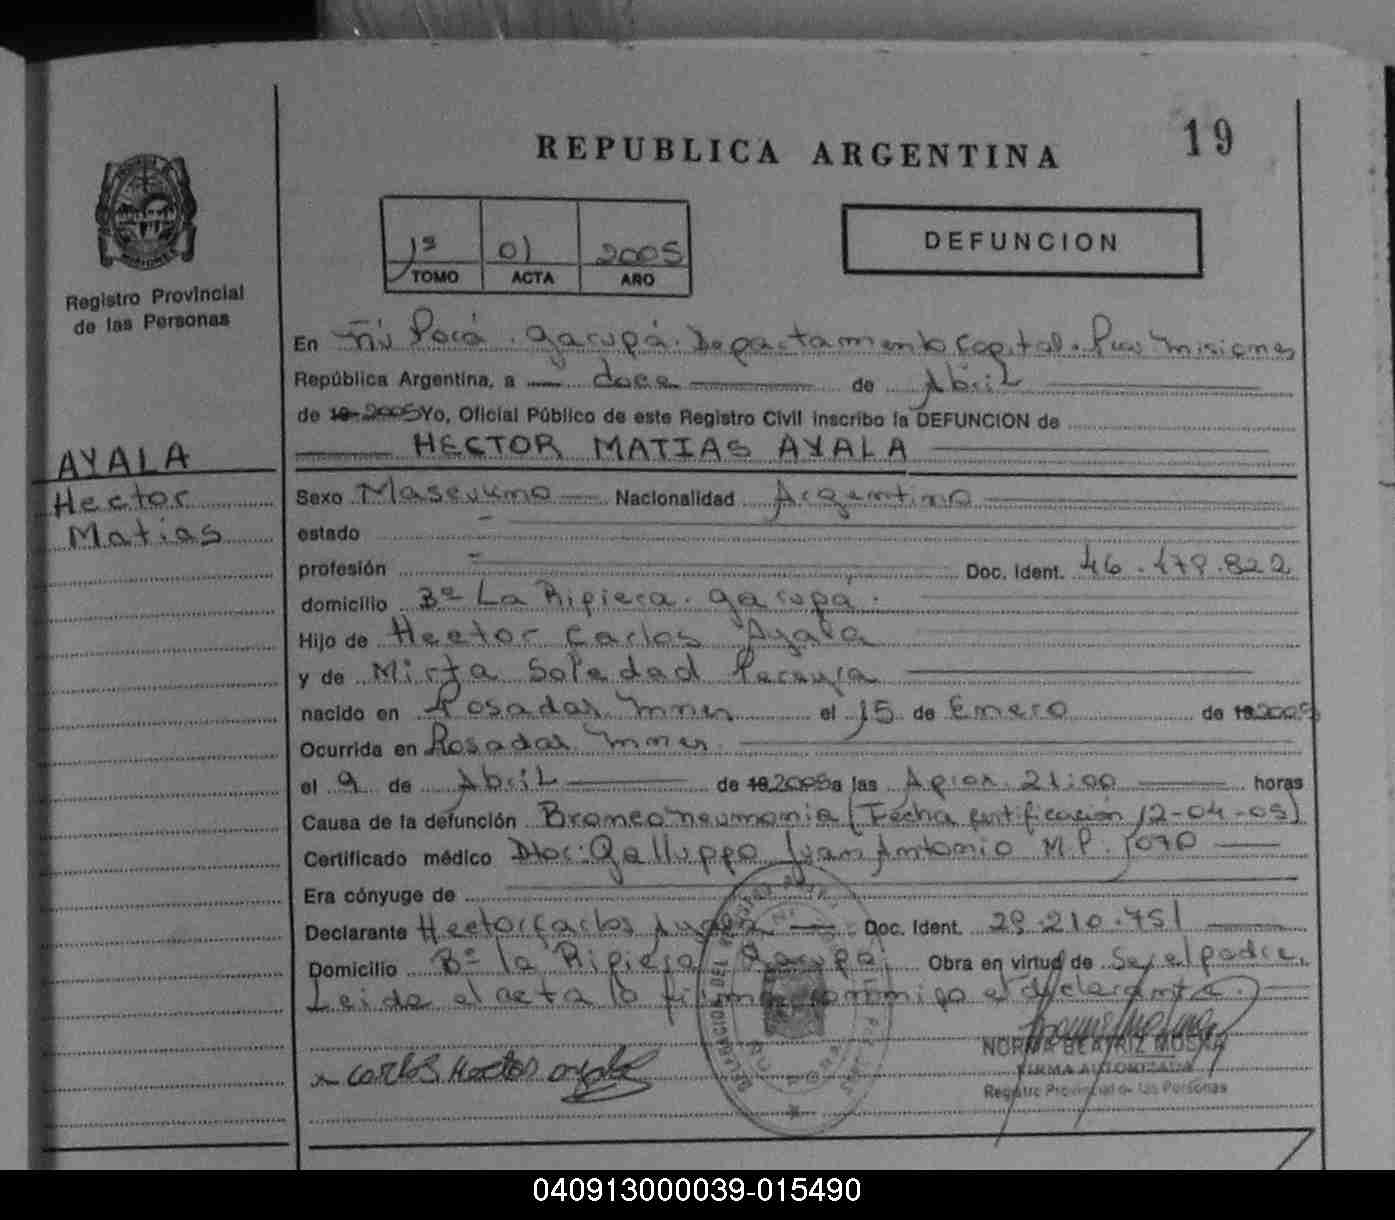 19
REPUBLICA ARGENTINA
1º 01 2005
TOMO ACTA AÑO
DEFUNCION
Registro Provincial
de las Personas
AYALA
Hector
Matias
En Ñu Porá. Garupá. Departamento Capital. Misiones
República Argentina, a doce de Abril
de 19 2005 Yo, Oficial Público de este Registro Civil inscribo la DEFUNCION de
HECTOR MATIAS AYALA
Sexo Masculino Nacionalidad Argentino
estado -
profesión - Doc. Ident. 46.478.822
domicilio Bº La Ripiera. Garupá.
Hijo de Hector Carlos Ayala
y de Mirta Soledad Pereyra
nacido en Posadas Mnes el 15 de Enero de 19 2005
Ocurrida en Posadas Mnes.
el 9 de Abril de 19 2005 a las Aprox. 21:00 horas
Causa de la defunción Bronconeumonia (Fecha certificación 12-04-05)
Certificado médico Dtor: Galluppo Juan Antonio M.P. 1070
Era cónyuge de
Declarante Hector Carlos Ayala Doc. Ident. 29.210.751
Domicilio Bº la Ripiera Garupá Obra en virtud de Ser el padre.
Leida el acta la firma conmigo el declarante.
Carlos Hector Ayala
NORMA BEATRIZ
FIRMA AUTORIZADA
Registro Provincial de las Personas
040913000039-015490